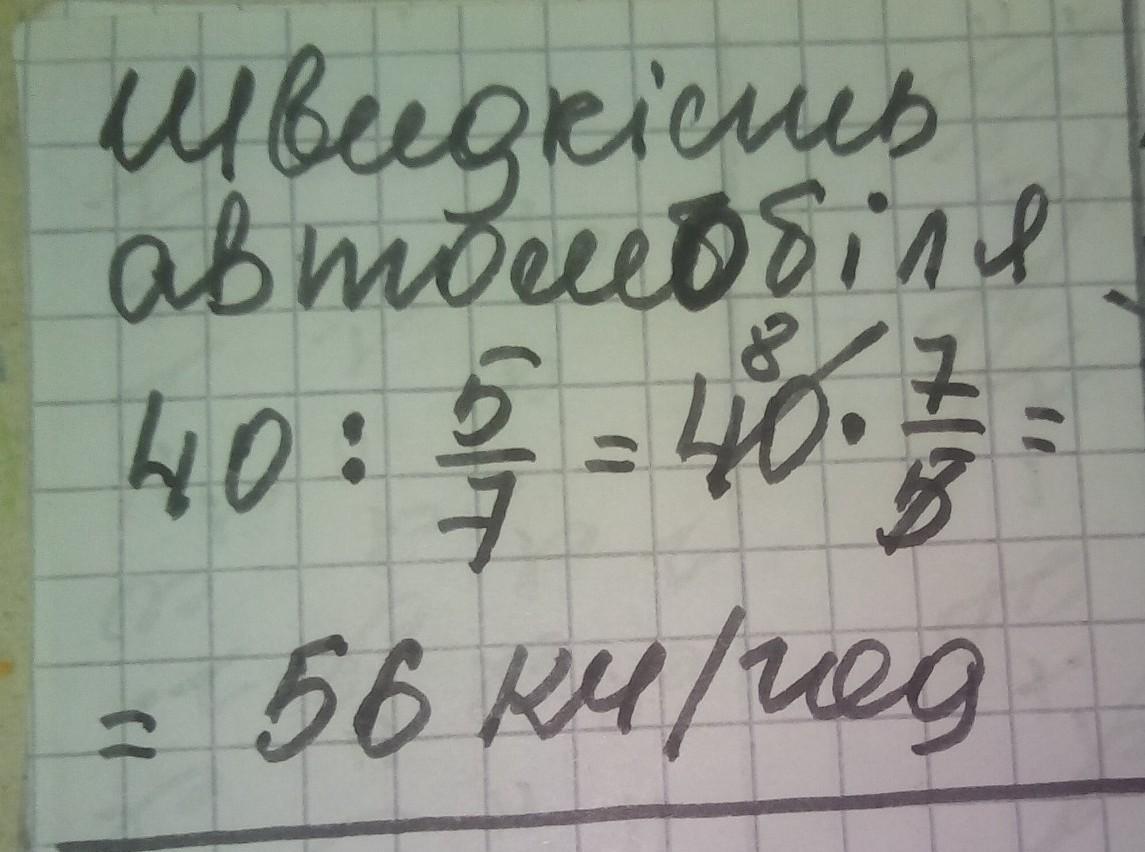 Швидкість
автомобіля
40 : 5/7 = 40 8 · 7/5 =
= 56 км/год